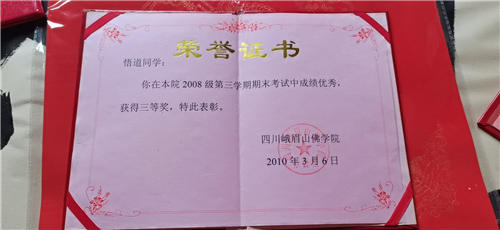 荣誉证书
悟道同学：
你在本院 2008 级第三学期期末考试中成绩优秀，
获得三等奖，特此表彰。
四川峨眉山佛学院
2010 年 3 月 6 日